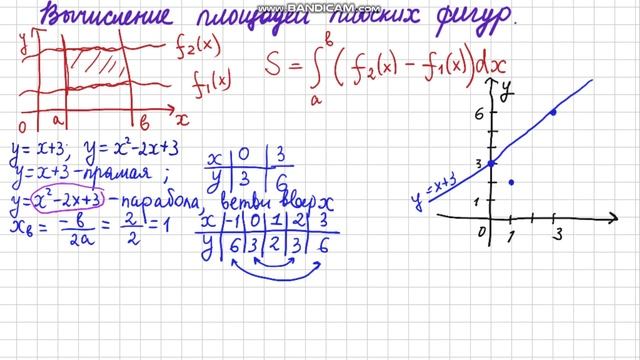 www.BANDICAM.com
Вычисление площадей плоских фигур.
y
f₂(x)
f₁(x)
0 a b x
S = ∫ₐᵇ (f₂(x) - f₁(x))dx
y = x+3; y = x²-2x+3
y = x+3 - прямая;
x | 0 | 3
y | 3 | 6
y = x²-2x+3 - парабола, ветви вверх
xв = -b/2a = 2/2 = 1
x | -1 | 0 | 1 | 2 | 3
y | 6 | 3 | 2 | 3 | 6
y
6
3
y = x+3
1
0 1 3